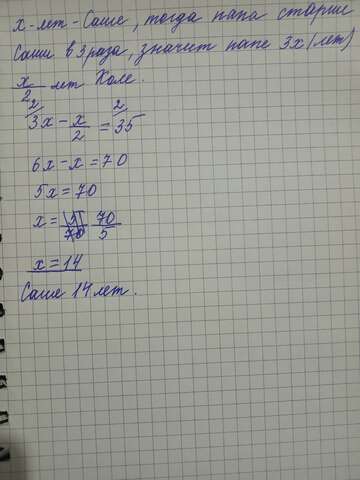 x-лет-Саше, тогда папа старше
Саши в 3 раза, значит папе 3x(лет)
x/2 лет Коле.
3x - x/2 = 35
6x - x = 70
5x = 70
x = 70/5
x = 14
Саше 14 лет.